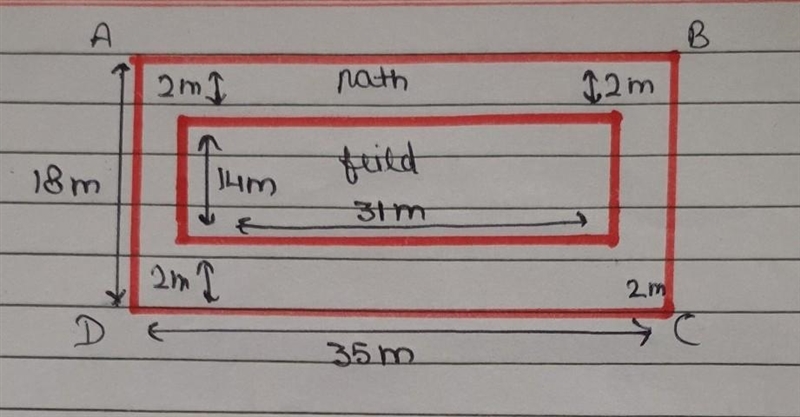 A B
2m path 2m
18m 14m feild
31m
2m 2m
D C
35m